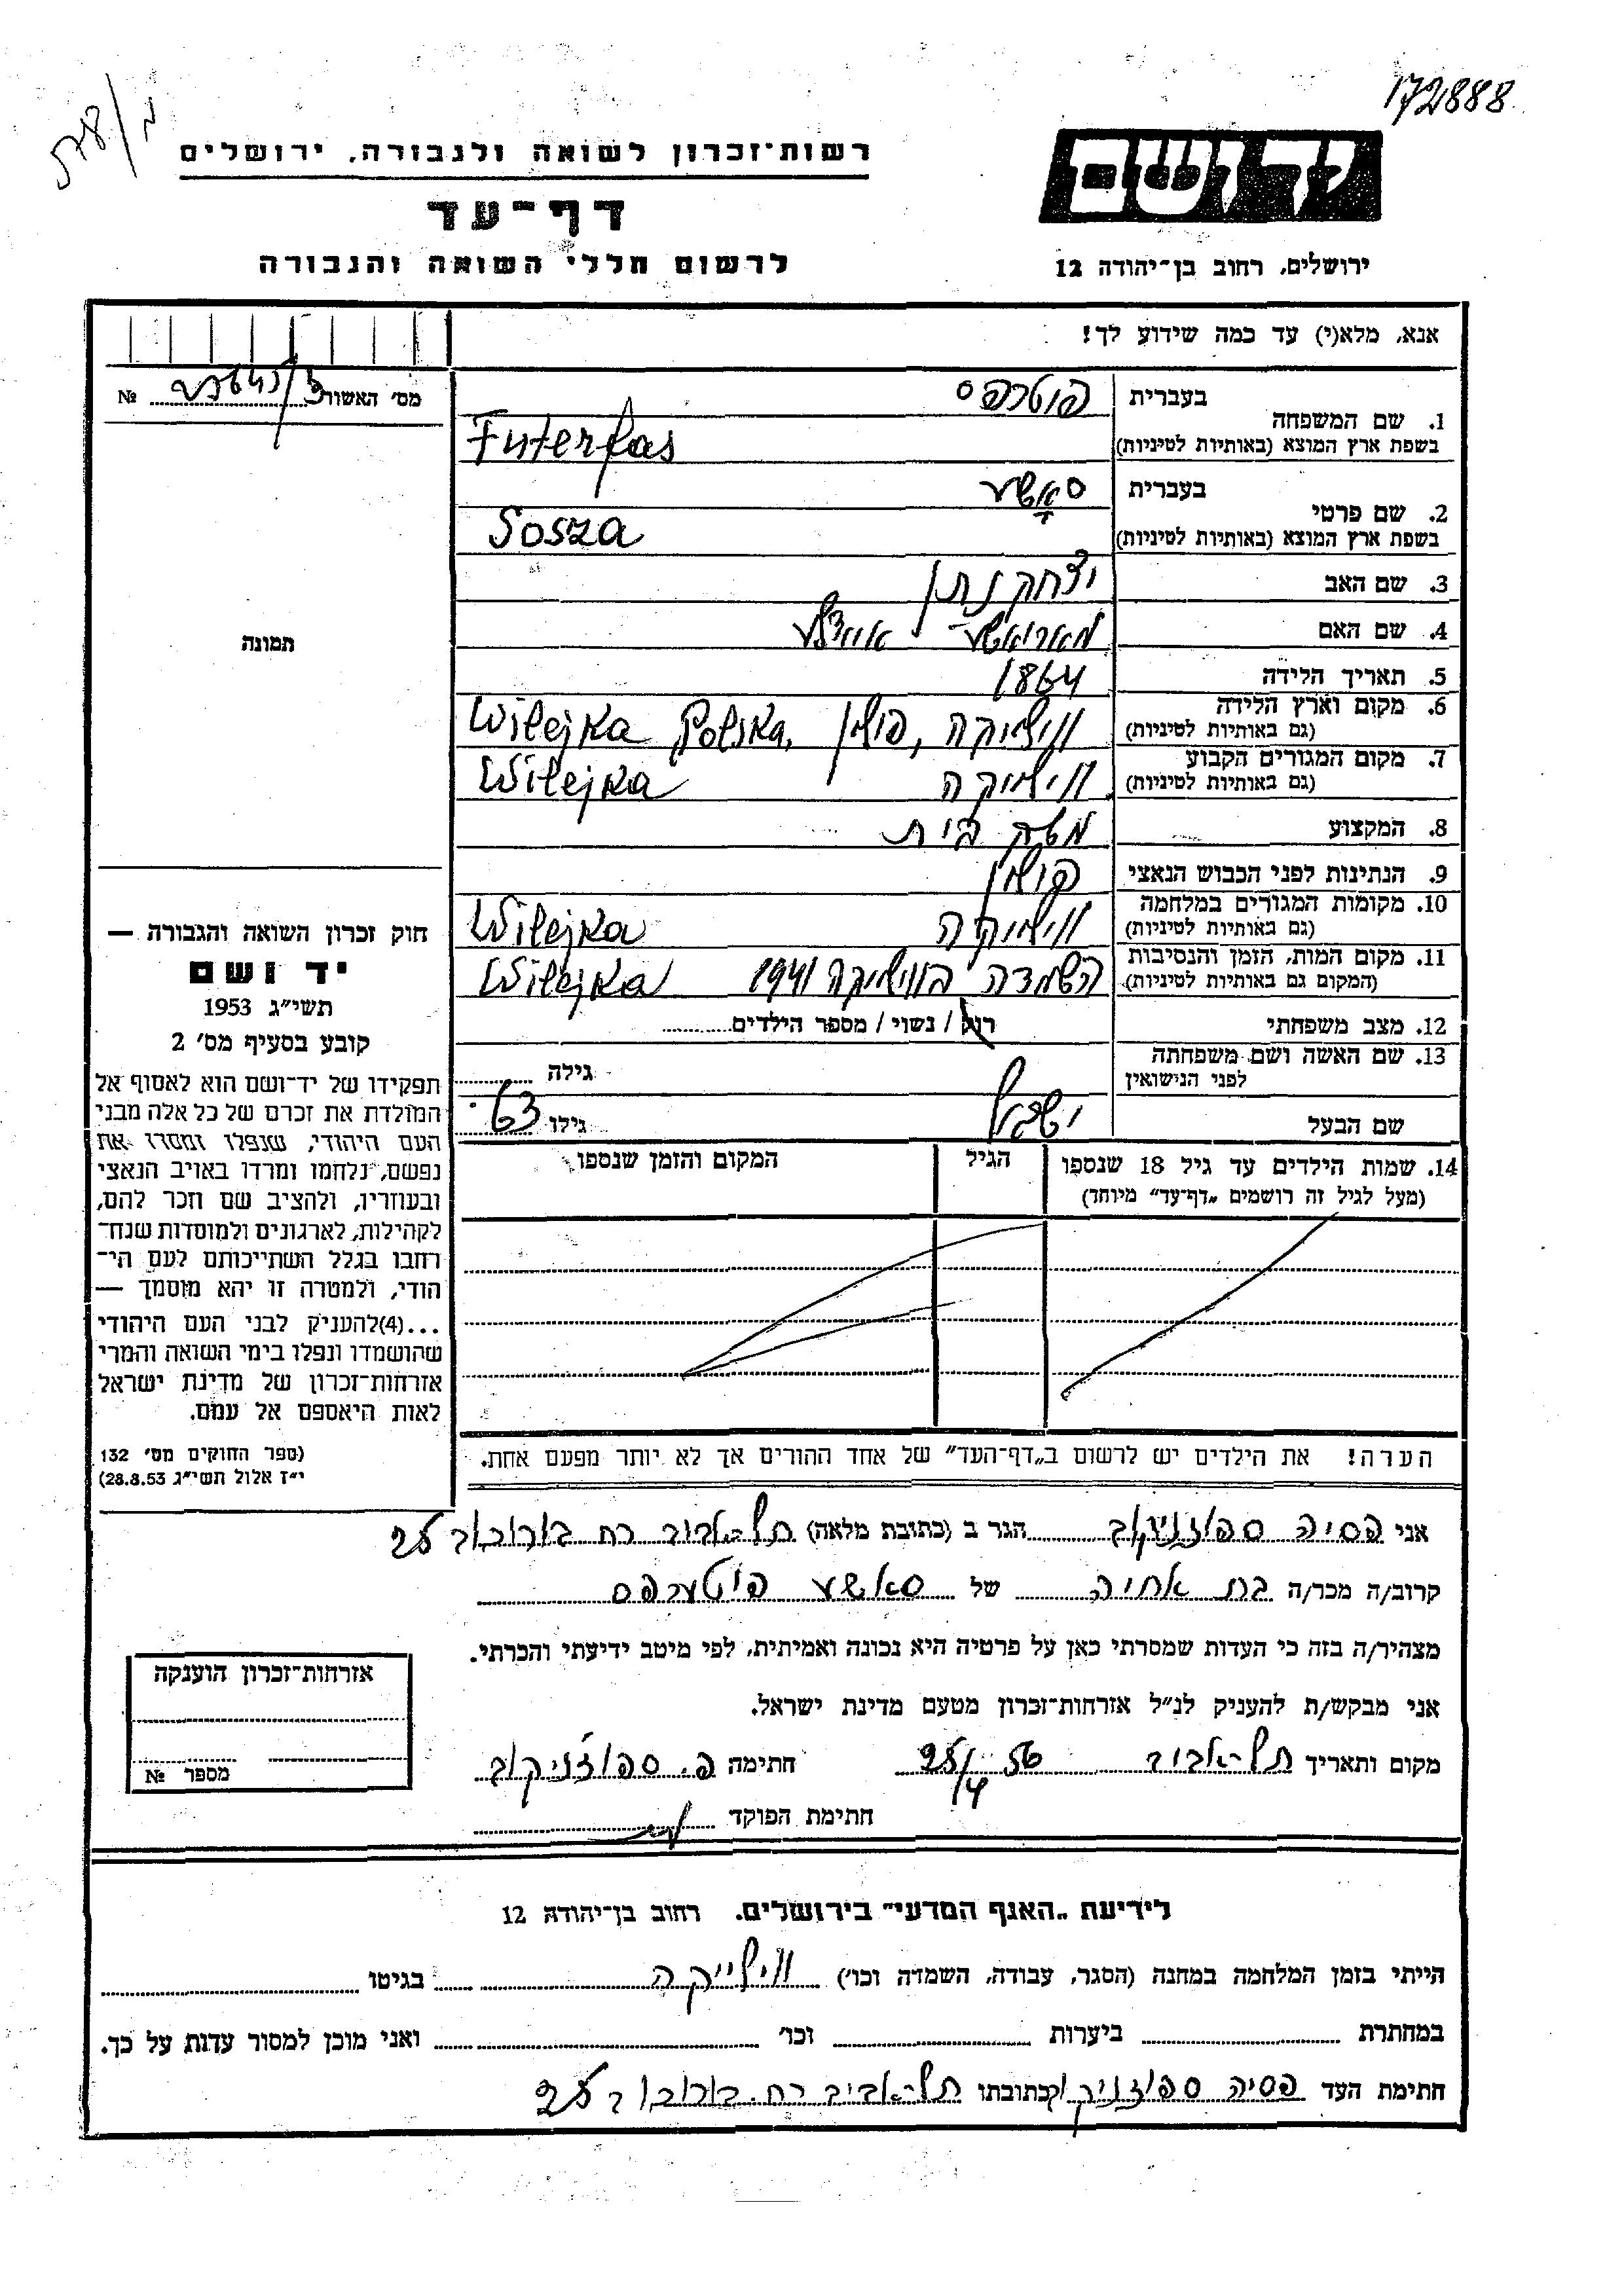 172888
רשות-זכרון לשואה ולגבורה, ירושלים
יד ושם
דף-עד
לרשום חללי השואה והגבורה
ירושלים, רחוב בן-יהודה 12
אנא, מלא(י) עד כמה שידוע לך!
מס׳ האשור №
1. שם המשפחה בעברית פוטרפס
בשפת ארץ המוצא (באותיות לטיניות) Futerfas
2. שם פרטי בעברית סאשע
בשפת ארץ המוצא (באותיות לטיניות) Sosza
3. שם האב יצחק נתן
4. שם האם
5. תאריך הלידה 1864
6. מקום וארץ הלידה (גם באותיות לטיניות) ווילייקה, פולין Wilejka Polska,
7. מקום המגורים הקבוע (גם באותיות לטיניות) ווילייקה Wilejka
8. המקצוע משק בית
9. הנתינות לפני הכבוש הנאצי פולין
10. מקומות המגורים במלחמה (גם באותיות לטיניות) ווילייקה Wilejka
11. מקום המות, הזמן והנסיבות (המקום גם באותיות לטיניות) השמדה בווילייקה 1941 Wilejka
12. מצב משפחתי רווק / נשוי / מספר הילדים
13. שם האשה ושם משפחתה לפני הנישואין גילה
שם הבעל ישראל גילו 63
14. שמות הילדים עד גיל 18 שנספו הגיל המקום והזמן שנספו
(מעל לגיל זה רושמים „דף-עד״ מיוחד)
הערה! את הילדים יש לרשום ב„דף-העד״ של אחד ההורים אך לא יותר מפעם אחת.
תמונה
חוק זכרון השואה והגבורה —
יד ושם
תשי״ג 1953
קובע בסעיף מס׳ 2
תפקידו של יד-ושם הוא לאסוף אל
המולדת את זכרם של כל אלה מבני
העם היהודי, שנפלו ומסרו את
נפשם, נלחמו ומרדו באויב הנאצי
ובעוזריו, ולהציב שם וזכר להם,
לקהילות, לארגונים ולמוסדות שנח-
רחבו בגלל השתייכותם לעם הי-
הודי, ולמטרה זו יהא מוסמך —
...(4)להעניק לבני העם היהודי
שהושמדו ונפלו בימי השואה והמרי
אזרחות-זכרון של מדינת ישראל
לאות היאספם אל עמם.
(ספר החוקים מס׳ 132
י״ז אלול תשי״ג 28.8.53)
אני פסיה ספוזניקוב הגר ב (כתובת מלאה) תל-אביב רח בורוכוב
קרוב/ה מכר/ה בת אחיה של סאשע פוטערפס
מצהיר/ה בזה כי העדות שמסרתי כאן על פרטיה היא נכונה ואמיתית, לפי מיטב ידיעתי והכרתי.
אני מבקש/ת להעניק לנ״ל אזרחות-זכרון מטעם מדינת ישראל.
מקום ותאריך תל-אביב 25/4 56 חתימה פ. ספוזניקוב
חתימת הפוקד
אזרחות-זכרון הוענקה
מספר №
לידיעת „האגף המדעי״ בירושלים, רחוב בן-יהודה 12
הייתי בזמן המלחמה במחנה (הסגר, עבודה, השמדה וכו׳) ווילייקה בגיטו
במחתרת ביערות וכו׳ ואני מוכן למסור עדות על כך.
חתימת העד פסיה ספוזניקוב כתובתו תל-אביב רח. בורוכוב